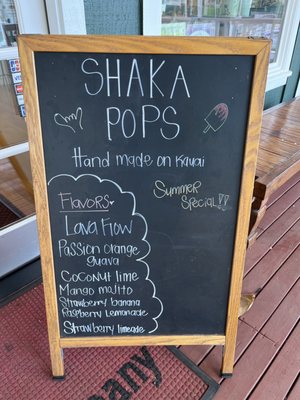 SHAKA
POPS
Hand made on Kauai
Flavors
Summer
Special!!
Lava Flow
Passion orange
guava
Coconut lime
Mango mojito
Strawberry banana
Raspberry Lemonade
Strawberry limeade
pany